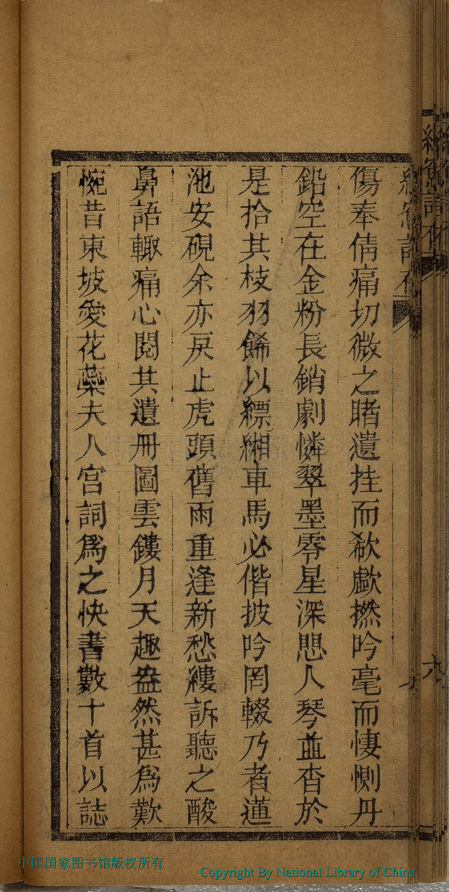 傷奉倩痛切微之睹遺挂而欷歔撚吟毫而悽惻丹
鉛空在金粉長銷劇憐翠墨零星深悲人琴並杳於
是拾其枝羽餙以縹緗車馬必偕披吟罔輟乃者蓮
池安硯余亦戾止虎頭舊雨重逢新愁縷訴聽之酸
鼻語輙痛心閱其遺冊圖雲鏤月天趣盎然甚為歎
惋昔東坡愛花蘂夫人宮詞為之快書數十首以誌
中国国家图书馆版权所有
Copyright By National Library of China